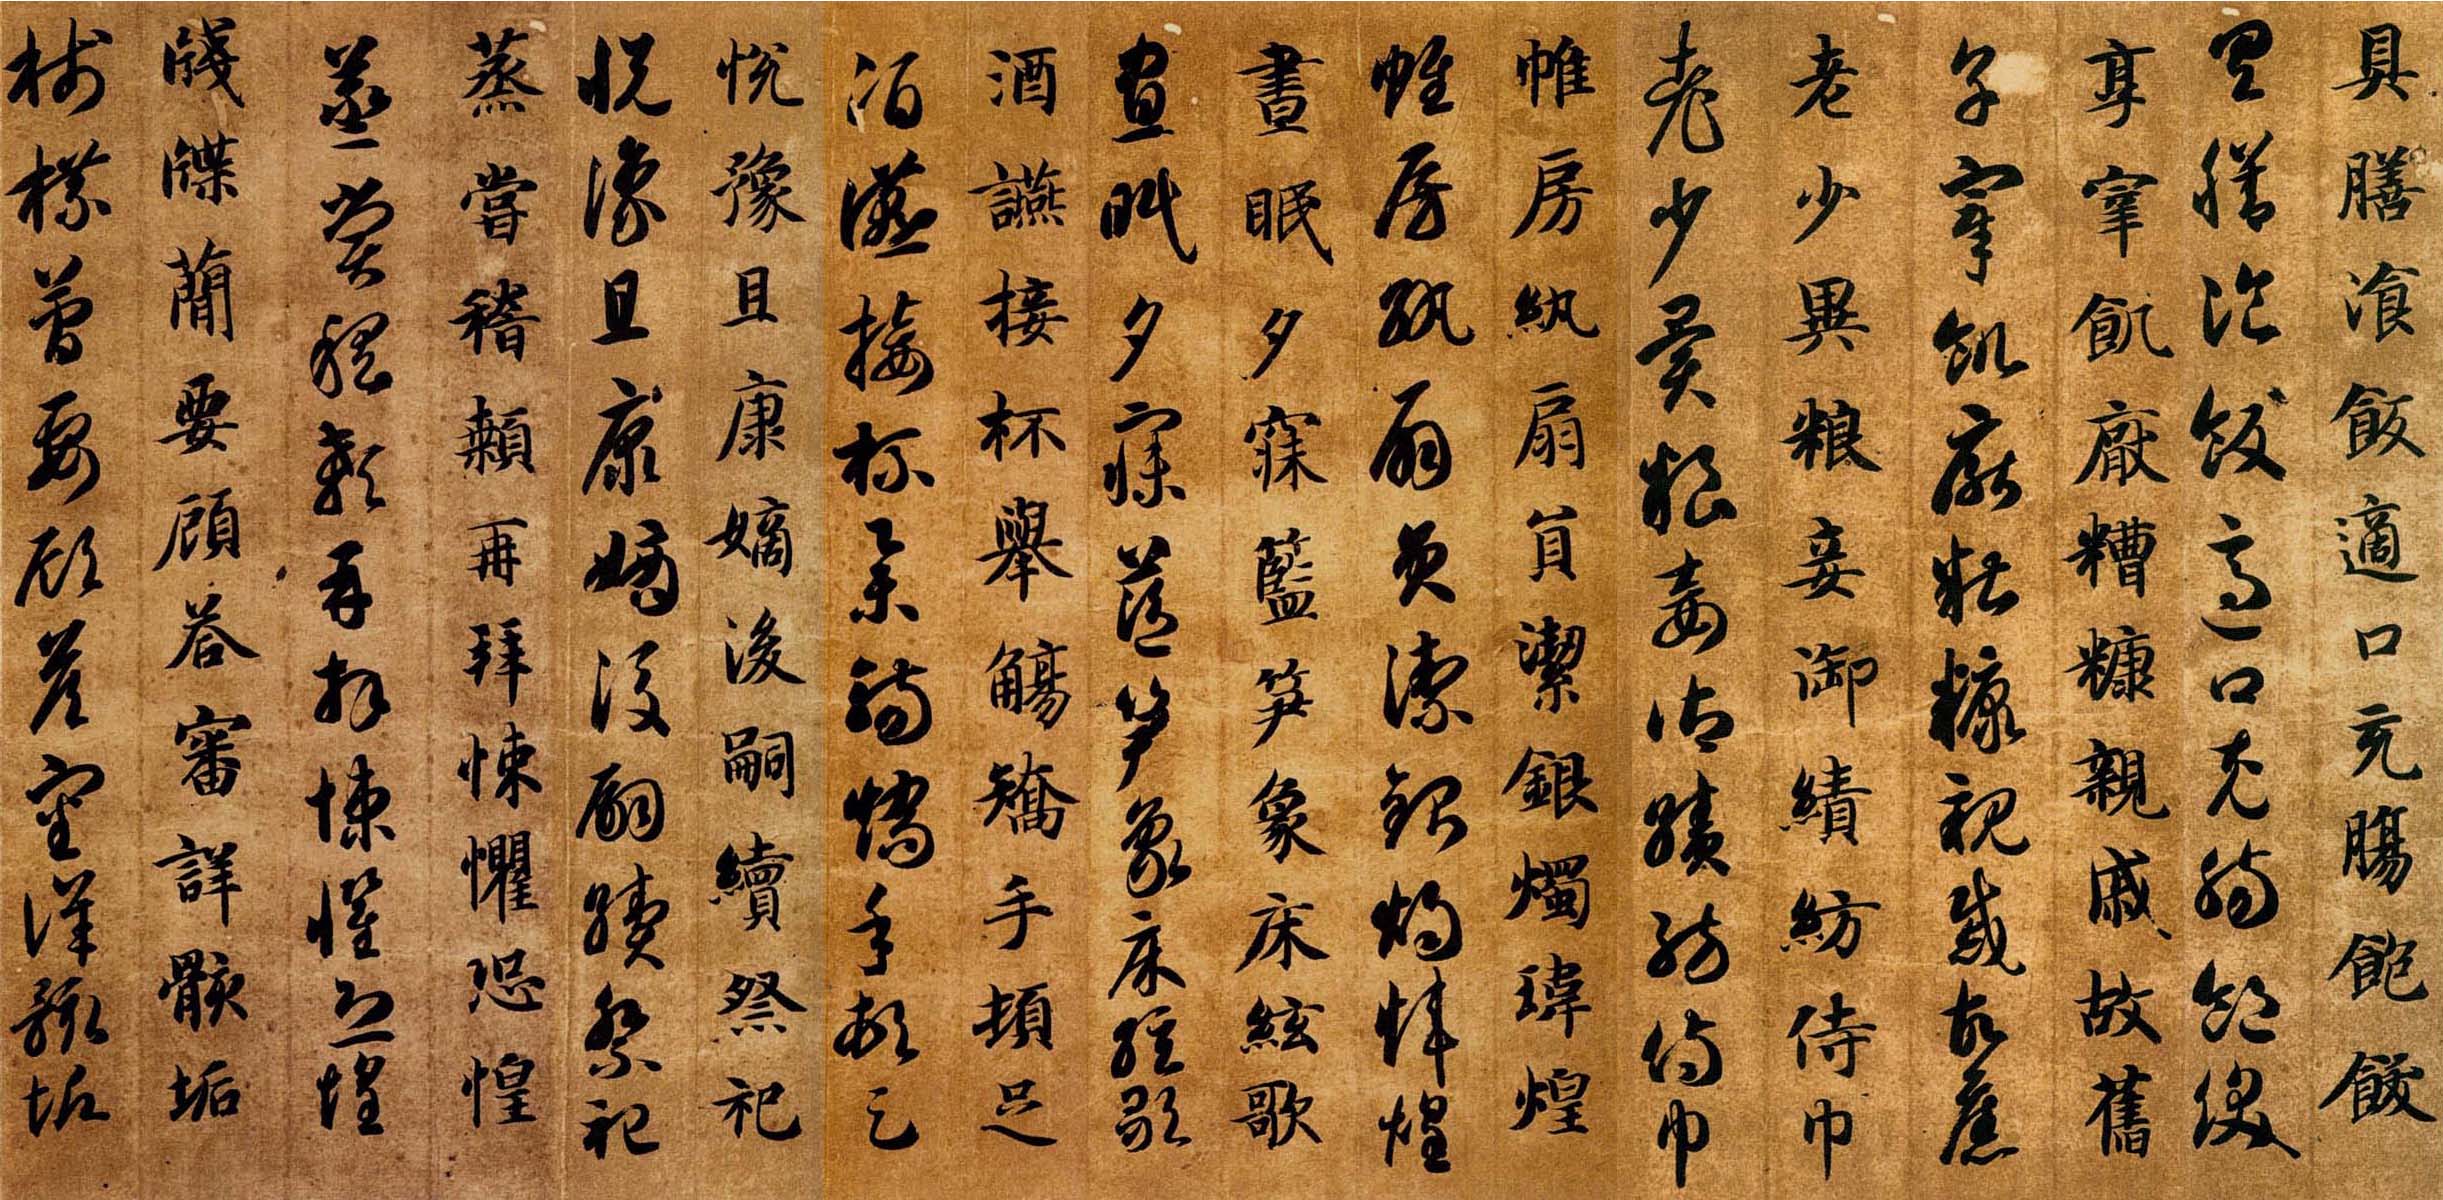 具膳湌飯適口充腸飽飫
具膳湌飯適口充腸飽飫
享宰飢厭糟糠親戚故舊
享宰飢厭糟糠親戚故舊
老少異粮妾御績紡侍巾
老少異粮妾御績紡侍巾
帷房紈扇員潔銀燭瑋煌
帷房紈扇員潔銀燭煒煌
晝眠夕寐藍笋象床絃歌
晝眠夕寐藍笋象床絃歌
酒讌接杯舉觴矯手頓足
酒讌接杯舉觴矯手頓足
悅豫且康嫡後嗣續祭祀
悅豫且康嫡後嗣續祭祀
蒸嘗稽顙再拜悚懼恐惶
蒸嘗稽顙再拜悚懼恐惶
牋牒簡要顧荅審詳骸垢
牋牒簡要顧荅審詳骸垢